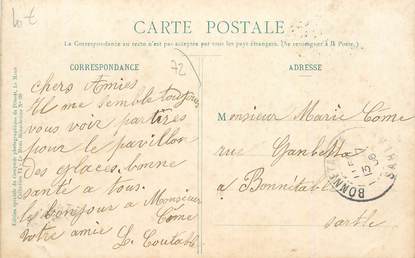 lot
CARTE POSTALE
La Correspondance au recto n'est pas acceptée par tous les pays étrangers. (Se renseigner à la Poste.)
CORRESPONDANCE
72
ADRESSE
chers Amies
Il me semble toujours
vous voir partires
pour le pavillon
des glaces. bonne
santé a tous.
le bonjour a Monsieur
Come
Votre amie L. Coutable
Monsieur Marie Come
rue Gambetta
a Bonnétable
sarthe
BONNETABLE
SARTHE